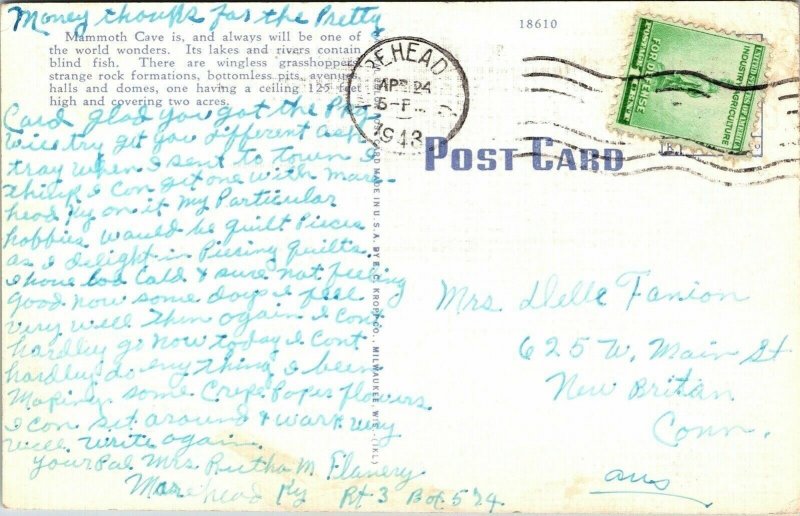 Money thanks for the Pretty
Mammoth Cave is, and always will be one of
the world wonders. Its lakes and rivers contain
blind fish. There are wingless grasshoppers,
strange rock formations, bottomless pits, avenues,
halls and domes, one having a ceiling 125 feet
high and covering two acres.
Card glad you got the
will try get you different ash
tray when I sent to town I
think I Can get one with More
head Ky on it My Particular
hobbies would be quilt Pieces
as I delight in Piecing quilts
I have bad Cold & sure not feeling
good now some days I feel
very well then again I Cont
hardley go now today I Cont
hardley do eny thing I been
Making some Crepe Paper flowers
I Con set around & work very
well write again
Your Pal Mrs. Burtha M Flanery
Morehead Ky Rt 3 Box 574
18610
MOREHEAD
APR 24
5-P
1943
UNITED STATES OF AMERICA
INDUSTRY AGRICULTURE
FOR DEFENSE
POST CARD
MADE IN U.S.A. BY E. C. KROPP CO., MILWAUKEE, WIS. (1KL)
Mrs. Delle Fanion
625 W. Main St
New Britan
Conn.
ans